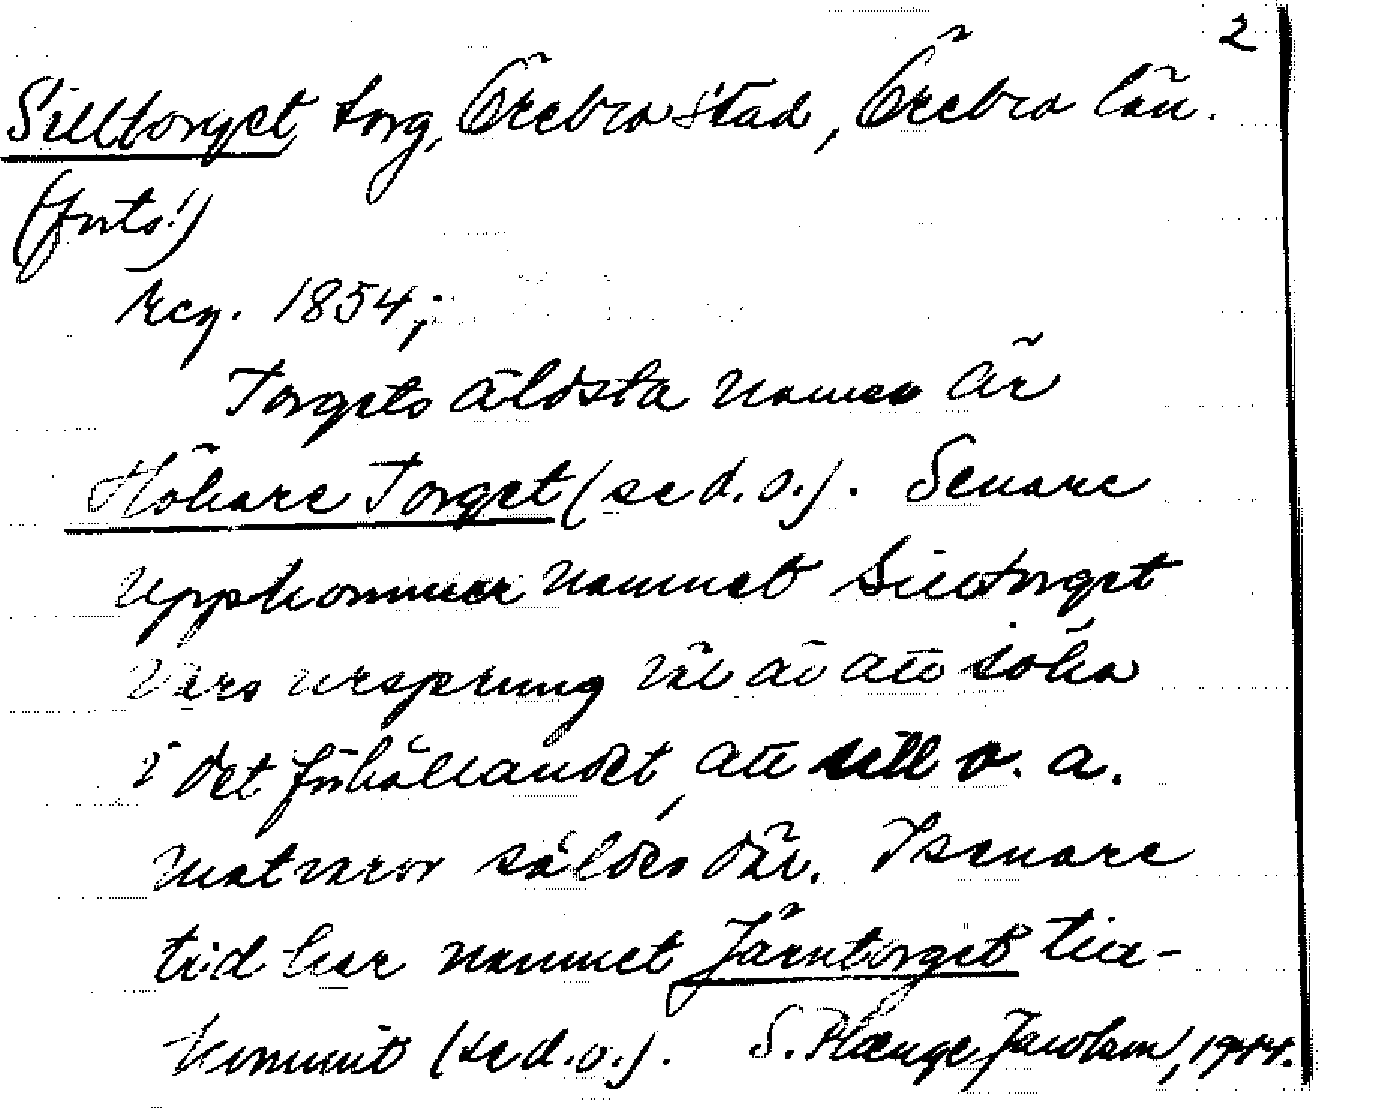 2
Silltorget, torg, Örebro stad, Örebro län.
(forts!)
reg. 1854;
Torgets äldsta namn är
Hökare Torget (se d. o.). Senare
uppkommer namnet Silltorget
vars ursprung väl är att söka
i det förhållandet, att sill o. a.
matvaror såldes där. I senare
tid har namnet Järntorget till-
kommit (se d. o.). S. Plænge Jacobson, 1944.